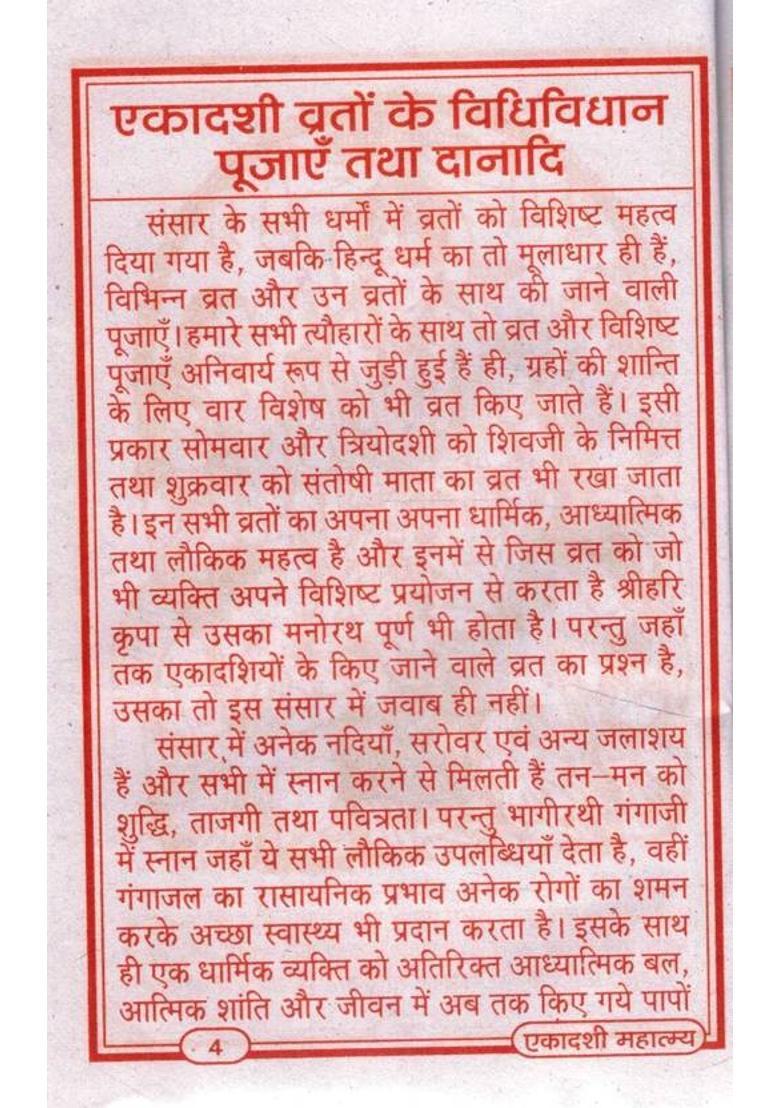 एकादशी व्रतों के विधिविधान
पूजाएँ तथा दानादि
संसार के सभी धर्मों में व्रतों को विशिष्ट महत्व
दिया गया है, जबकि हिन्दू धर्म का तो मूलाधार ही हैं,
विभिन्न व्रत और उन व्रतों के साथ की जाने वाली
पूजाएँ। हमारे सभी त्यौहारों के साथ तो व्रत और विशिष्ट
पूजाएँ अनिवार्य रूप से जुड़ी हुई हैं ही, ग्रहों की शान्ति
के लिए वार विशेष को भी व्रत किए जाते हैं। इसी
प्रकार सोमवार और त्रियोदशी को शिवजी के निमित्त
तथा शुक्रवार को संतोषी माता का व्रत भी रखा जाता
है। इन सभी व्रतों का अपना अपना धार्मिक, आध्यात्मिक
तथा लौकिक महत्व है और इनमें से जिस व्रत को जो
भी व्यक्ति अपने विशिष्ट प्रयोजन से करता है श्रीहरि
कृपा से उसका मनोरथ पूर्ण भी होता है। परन्तु जहाँ
तक एकादशियों के किए जाने वाले व्रत का प्रश्न है,
उसका तो इस संसार में जवाब ही नहीं।
संसार में अनेक नदियाँ, सरोवर एवं अन्य जलाशय
हैं और सभी में स्नान करने से मिलती हैं तन-मन को
शुद्धि, ताजगी तथा पवित्रता। परन्तु भागीरथी गंगाजी
में स्नान जहाँ ये सभी लौकिक उपलब्धियाँ देता है, वहीं
गंगाजल का रासायनिक प्रभाव अनेक रोगों का शमन
करके अच्छा स्वास्थ्य भी प्रदान करता है। इसके साथ
ही एक धार्मिक व्यक्ति को अतिरिक्त आध्यात्मिक बल,
आत्मिक शांति और जीवन में अब तक किए गये पापों
4
एकादशी महात्म्य